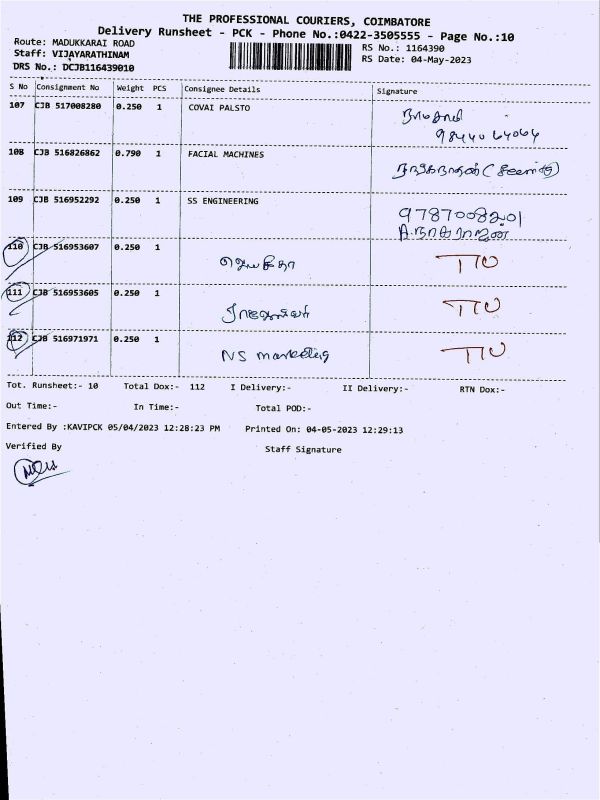 THE PROFESSIONAL COURIERS, COIMBATORE
Delivery Runsheet - PCK - Phone No.:0422-3505555 - Page No.:10
Route: MADUKKARAI ROAD
RS No.: 1164390
Staff: VIJAYARATHINAM
RS Date: 04-May-2023
DRS No.: DCJB116439010
S No Consignment No Weight PCS Consignee Details Signature
107 CJB 517008280 0.250 1 COVAI PALSTO
108 CJB 516826862 0.790 1 FACIAL MACHINES
109 CJB 516952292 0.250 1 SS ENGINEERING
A.நாகராஜன்
110 CJB 516953607 0.250 1
111 CJB 516953605 0.250 1
112 CJB 516971971 0.250 1 NS marketing
Tot. Runsheet:- 10 Total Dox:- 112 I Delivery:- II Delivery:- RTN Dox:-
Out Time:- In Time:- Total POD:-
Entered By :KAVIPCK 05/04/2023 12:28:23 PM Printed On: 04-05-2023 12:29:13
Verified By Staff Signature